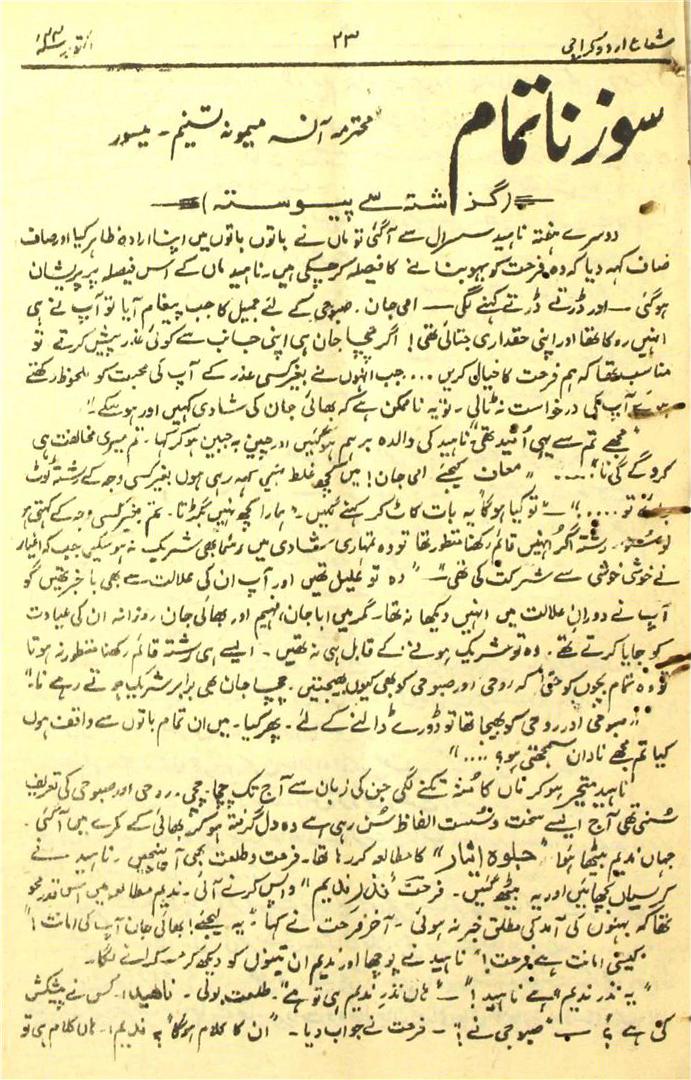 شعاع اردو کراچی
۲۳
اکتوبر سنہ
سوز ناتمام
محترمہ آنسہ میمونہ تسنیم - میسور
(گزشتہ سے پیوستہ)
دوسرے ہفتہ ناہید سسرال سے آگئی تو ماں نے باتوں باتوں میں اپنا ارادہ ظاہر کیا اور صاف
صاف کہہ دیا کہ وہ فرحت کو بہو بنانے کا فیصلہ کر چکی ہیں۔ ناہید ماں کے اس فیصلہ پر پریشان
ہوگئی — اور ڈرتے ڈرتے کہنے لگی — امی جان۔ صبوحی کے لئے جمیل کا جب پیغام آیا تو آپ نے ہی
انہیں روکا تھا اور اپنی حقداری جتائی تھی! اگر چچا جان ہی اپنی جانب سے کوئی عذر پیش کرتے تو
مناسب تھا کہ ہم فرحت کا خیال کریں ... جب انہوں نے بغیر کسی عذر کے آپ کی محبت کو ملحوظ رکھتے
ہوئے آپ کی درخواست نہ ٹالی۔ تو یہ ناممکن ہے کہ بھائی جان کی شادی کہیں اور ہوسکے۔"
"مجھے تم سے یہی اُمید تھی" ناہید کی والدہ برہم ہوگئیں اور چیں بہ جبیں ہو کر کہا۔ تم میری مخالفت ہی
کرو گے گی نا! .... " معاف کیجئے امی جان! میں کچھ غلط نہیں کہہ رہی ہوں بغیر کسی وجہ کے رشتہ ٹوٹ
جائے تو ....!" — تو کیا ہوگا" یہ بات کاٹ کر کہنے لگیں۔ ہمارا کچھ نہیں بگڑتا۔ تم بغیر کسی وجہ کے کہتی ہو
لو سنو۔ رشتہ اگر انہیں قائم رکھنا منظور تھا تو وہ تمہاری شادی میں رسماً بھی شریک نہ ہوسکیں جب کہ اغیار
نے خوشی خوشی سے شرکت کی تھی۔" — "وہ تو علیل تھیں اور آپ ان کی علالت سے بھی باخبر تھیں گو
آپ نے دوران علالت میں انہیں دیکھا نہ تھا۔ مگر میں ابا جان، فہیم اور بھائی جان روزانہ ان کی عیادت
کو جایا کرتے تھے۔ وہ تو شریک ہونے کے قابل ہی نہ تھیں۔ ایسے ہی رشتہ قائم رکھنا منظور نہ ہوتا
تو وہ تمام بچوں کو حتیٰ کہ روحی اور صبوحی کو بھی کیوں بھیجتیں۔ چچا جان بھی برابر شریک ہوتے رہے نا۔"
"صبوحی اور روحی کو بھیجا تھا تو ڈورے ڈالنے کے لئے۔ پھر کیا۔ میں ان تمام باتوں سے واقف ہوں
کیا تم مجھے نادان سمجھتی ہو؟ ...."
ناہید متحیر ہو کر ماں کا منہ تکنے لگی جن کی زبان سے آج تک چچا۔ چچی۔ روحی اور صبوحی کی تعریف
سُنی تھی آج ایسے سخت و سُست الفاظ سُن رہی ہے وہ دل گرفتہ ہو کر بھائی کے کمرے میں آگئی۔
جہاں ندیم بیٹھا ہوا "جلوہ ایثار" کا مطالعہ کر رہا تھا۔ فرحت و طلعت بھی آ پہنچیں۔ ناہید نے
کرسیاں بچھائیں اور یہ بیٹھ گئیں۔ فرحت "نذر ندیم" واپس کرنے آئی۔ ندیم مطالعہ میں اس قدر محو
تھا کہ بہنوں کی آمد کی مطلق خبر نہ ہوئی۔ آخر فرحت نے کہا۔ "یہ لیجئے! بھائی جان آپ کی امانت!"
"کیسی امانت ہے فرحت!" ناہید نے پوچھا اور ندیم ان تینوں کو دیکھ کر مسکرانے لگا۔
"یہ نذر ندیم ہے ناہید!" — "ہاں نذر ندیم ہی تو ہے"۔ طلعت بولی۔ ناہید۔ کس نے پیشکش
کی ہے؟ سب صبوحی نے!" — فرحت نے جواب دیا۔ "ان کا کلام ہوگا" یہ ندیم۔ ہاں کلام ہی تو